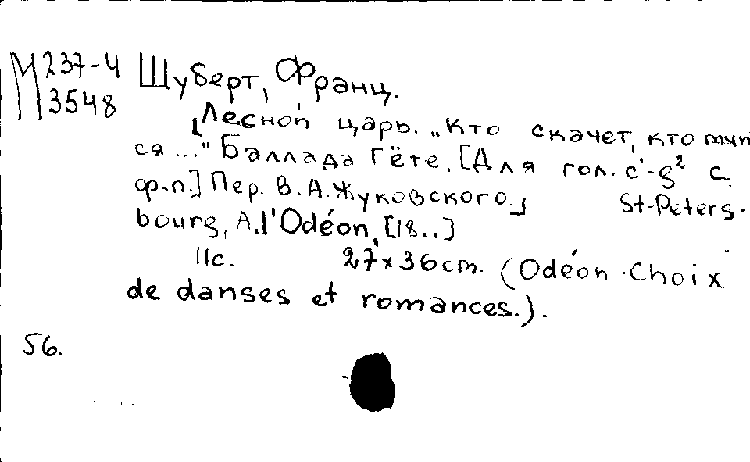 М 237-4
3548
Шуберт, Франц.
[Лесной царь. „Кто скачет, кто мчит
ся..." Баллада Гёте. [Для гол. c¹-g² с
ф-п.] Пер. В.А.Жуковского.] St-Peters-
bourg, A l'Odéon, [18..]
11с. 27×36cm. (Odéon. Choix
de danses et romances.).
56.